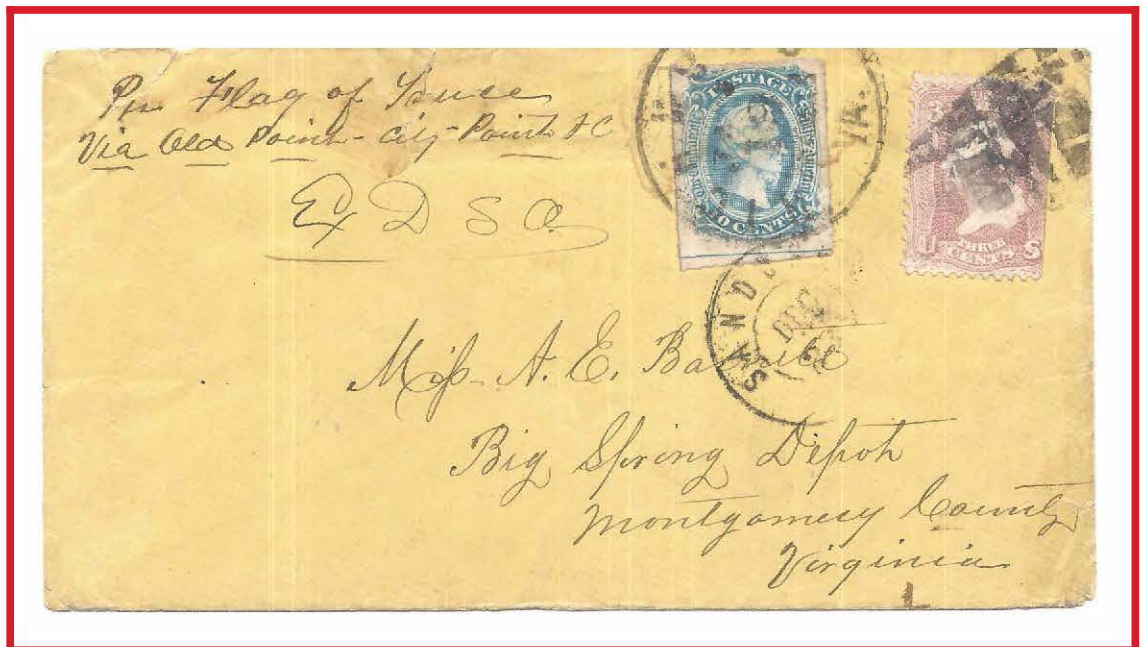 Per Flag of Truce
Via Old Point - City Point & C
Ex D S O
POSTAGE
10 CENTS
VA.
3
U
THREE
CENTS
S
SANDU
DEC
Miss A. E.
Big Spring Depot
Montgomery County
Virginia